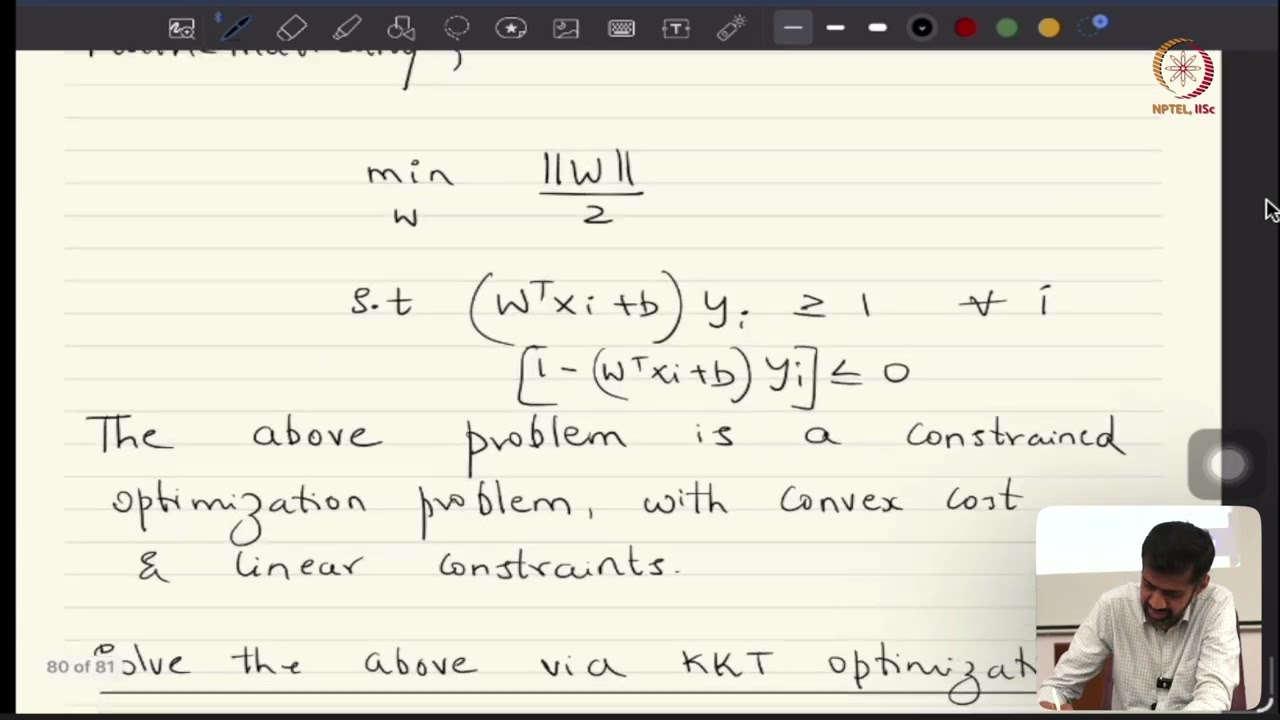 NPTEL, IISc
min ||W||
w 2
s.t (WᵀXi + b) yi ≥ 1 ∀ i
[1 - (WᵀXi + b) yi] ≤ 0
The above problem is a constrained
optimization problem, with convex cost
& linear constraints.
80 of 81
Solve the above via KKT